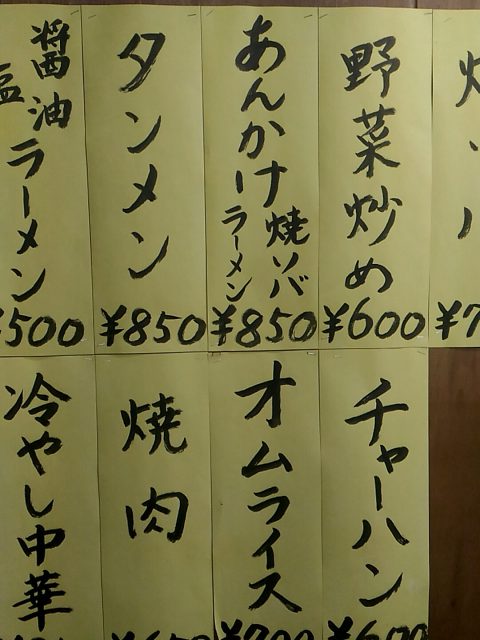 醤油
塩
ラーメン
¥500
タンメン
¥850
あんかけ
焼ソバ
ラーメン
¥850
野菜炒め
¥600
¥7
冷やし中華
焼肉
オムライス
チャーハン